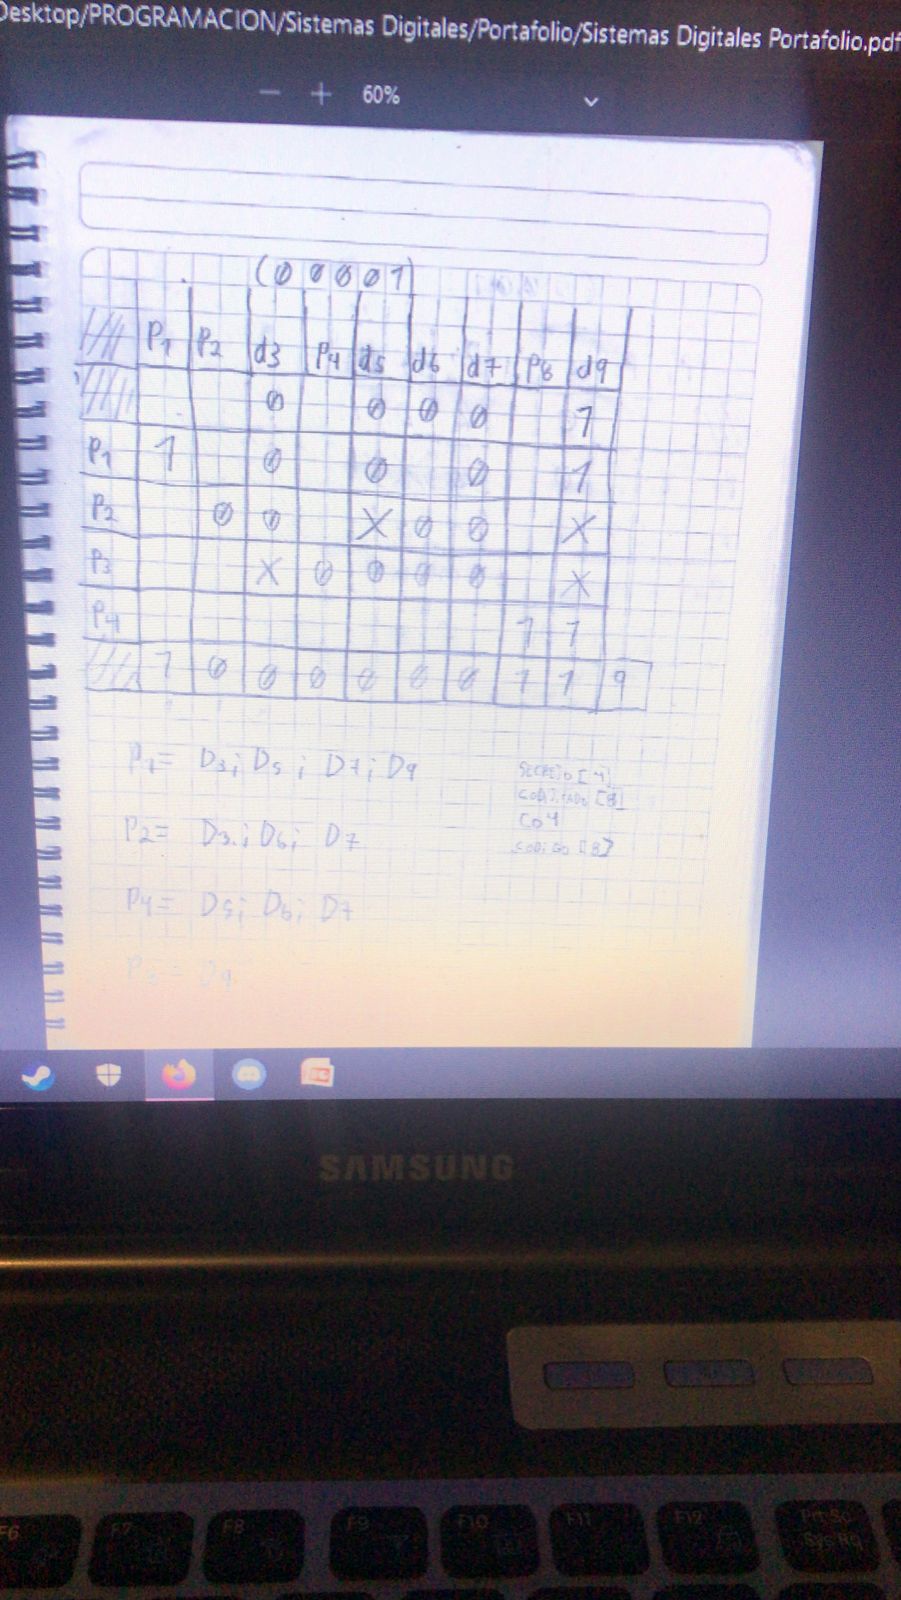 Desktop/PROGRAMACION/Sistemas Digitales/Portafolio/Sistemas Digitales Portafolio.pdf
— + 60%
(0 0 0 0 1)
P1 P2 d3 P4 d5 d6 d7 P8 d9
0 0 0 0 1
P1 1 0 0 0 1
P2 0 0 X 0 0 X
P3 X 0 0 0 0 X
P4 1 1
1 0 0 0 0 0 0 1 1 9
P1= D3; D5; D7; D9
SECRETO [4]
CODIFICADO [8]
P2= D3; D6; D7
CO4
CODIGO [8]
P4= D5; D6; D7
P8= D9
SAMSUNG
F6 F7 F8 F9 F10 F11 F12 Prt Sc
Sys Rq